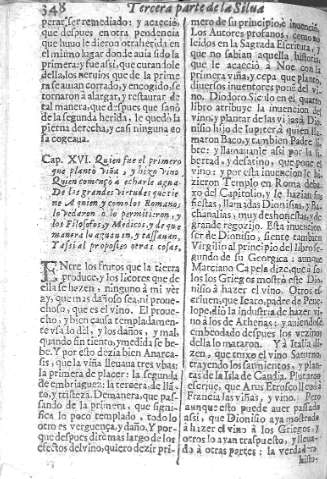 348
Tercera parte de la Silua
perar, ser remediado: y acaeció,
que despues en otra pendencia
que huuo le dieron otra herida en
el mismo lugar donde auia sido la
primera: y fue assi, que curandole
della, los neruios que de la prime
ra se auian corrado, y encogido, se
tornaron à alargar, y restaurar de
tal manera, que despues que sanò
de la segunda herida, le quedò la
pierna derecha, y casi ninguna co
sa coxeaua.
Cap. XVI. Quien fue el primero
que plantò viña, y hizo vino
Quien començò a echarle agua
De las grandes virtudes que tie
ne A quien y como los Romanos
lo vedaron o lo permitieron, y
los Filosofos, y Medicos, y de que
manera lo aguauan, y tassauan,
Y assi al proposito otras cosas.
ENtre los frutos que la tierra
produce, y los licores que de
ella se hazen, ninguno à mi ver
ay, que mas dañoso sea, ni proue-
choso, que es el vino. El proue-
cho, y bien causa templadamen-
te vsa lo dèl, y los daños, y mal,
quando sin tiento, y medida se be-
be. Y por esto dezia bien Anacar-
sis, que la viña lleuaua tres vbas:
la primera de placer: la segunda
de embriaguez: la tercera, de llã-
to, y tristeza. De manera, que pas-
sando de la primera, que signi-
fica lo poco templado, todo lo
otro es verguença, y daño. Y por-
que despues diremos largo de los
efectos del vino, quiero dezir pri-
mero de su principio è inuenciò,
Los Autores profanos, como no
leidos en la Sagrada Escritura, y
que no sabian aquella historia,
que le acaeciò à Noe con la
primera viña, y cepa que plantò,
diuersos inuentores ponè del vi-
no. Diodoro Siculo en el quarto
libro atribuye la inuencion del
vino, y plantar de las viñas à Dio-
nisio hijo de Iupiter à quien lla-
maron Baco, y tambien Padre li-
bre: y llamauanle assi por la li-
bertad, y desatino, que pone el
vino: y por esta inuencion le hi-
zieron Templo en Roma deba-
xo del Capitolio, y le hazian
fiestas, llamadas Dionisias, y Ba-
chanalias, muy deshonestas, y de
grande regozijo. Esta inuencion
ser de Dionisio, siente tambien
Virgilio al principio del libro se-
gundo de su Georgica: aunque
Marciano Capela dize, que à so-
los los Griegos mostrò este Dio-
nisio à hazer el vino. Otros es-
criuen, que Icaro, padre de Pene-
lope, diò la industria de hazer vi-
no à los de Athenas: y auiendose
embeodado despues los vezinos
della lo mataron. Y à Italia di-
zen, que truxo el vino Saturno
trayendo los sarmientos, y plan-
tas de la Isla de Candia. Plutarco
escriue, que Aruns Etrosco lleuò à
Francia las viñas, y vino. Pero
aunque esto puede auer passado
assi, que Dionisio aya mostrado
à hazer el vino à los Griegos, y
otros lo ayan traspuesto, y lleua-
do à otras partes: la verdad